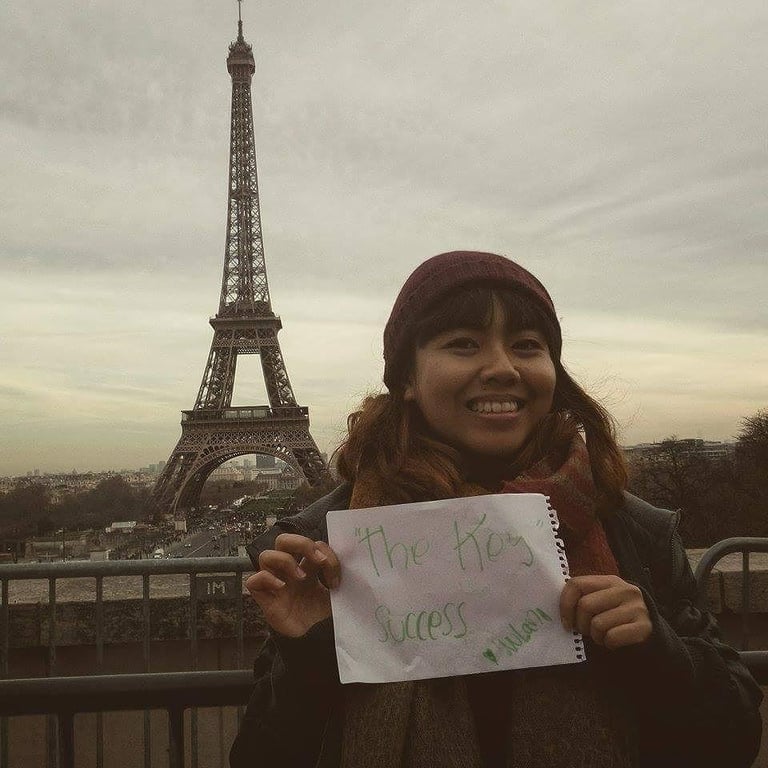 "The Key"
Success
1M